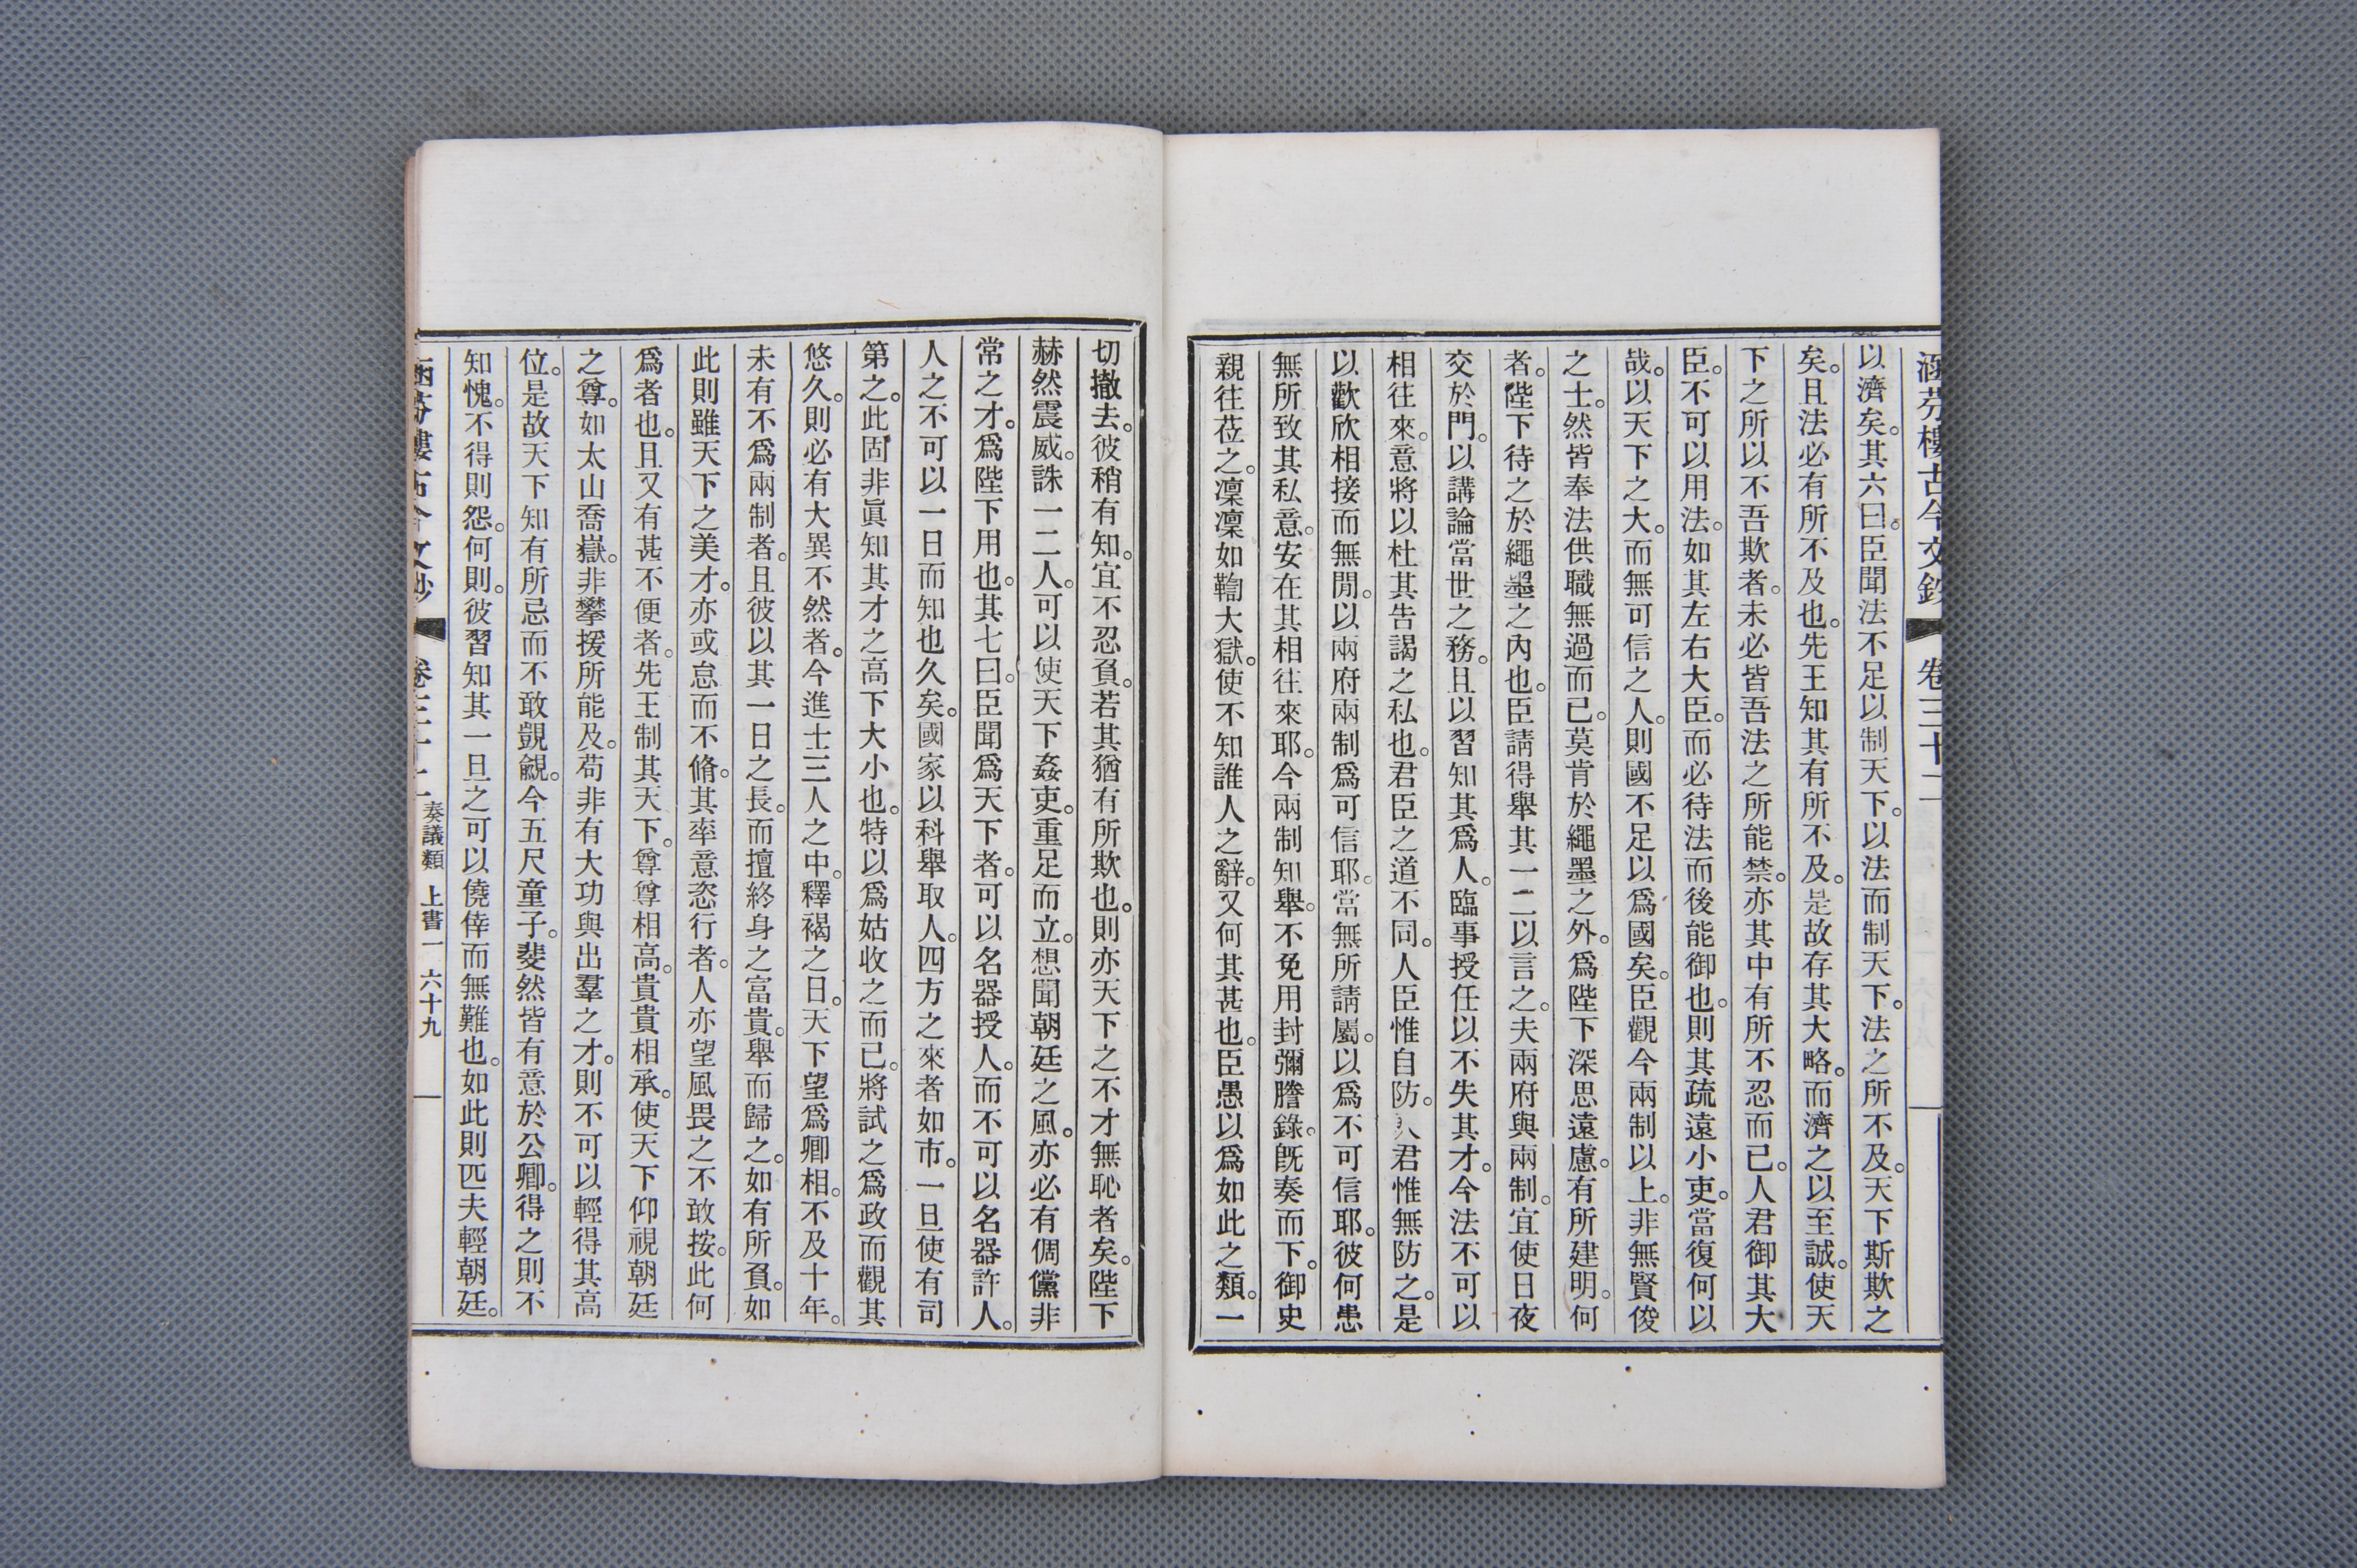 涵芬樓古今文鈔 卷三十二
以濟矣。其六曰。臣聞法不足以制天下。以法而制天下。法之所不及。天下斯欺之
矣。且法必有所不及也。先王知其有所不及。是故存其大略。而濟之以至誠。使天
下之所以不吾欺者。未必皆吾法之所能禁。亦其中有所不忍而已。人君御其大
臣。不可以用法。如其左右大臣。而必待法而後能御也。則其疏遠小吏。當復何以
哉。以天下之大。而無可信之人。則國不足以爲國矣。臣觀今兩制以上。非無賢俊
之士。然皆奉法供職無過而已。莫肯於繩墨之外。爲陛下深思遠慮。有所建明。何
者。陛下待之於繩墨之內也。臣請得舉其一二以言之。夫兩府與兩制。宜使日夜
交於門。以講論當世之務。且以習知其爲人。臨事授任以不失其才。今法不可以
相往來。意將以杜其告謁之私也。君臣之道不同。人臣惟自防。人君惟無防之。是
以歡欣相接而無閒。以兩府兩制爲可信耶。當無所請屬。以爲不可信耶。彼何患
無所致其私意。安在其相往來耶。今兩制知舉。不免用封彌謄錄。既奏而下。御史
親往莅之。凜凜如鞫大獄。使不知誰人之辭。又何其甚也。臣愚以爲如此之類。一
切撤去。彼稍有知。宜不忍負。若其猶有所欺也。則亦天下之不才無恥者矣。陛下
赫然震威。誅一二人。可以使天下姦吏。重足而立。想聞朝廷之風。亦必有倜儻非
常之才。爲陛下用也。其七曰。臣聞爲天下者。可以名器授人。而不可以名器許人。
人之不可以一日而知也久矣。國家以科舉取人。四方之來者如市。一旦使有司
第之。此固非眞知其才之高下大小也。特以爲姑收之而已。將試之爲政而觀其
悠久。則必有大異不然者。今進士三人之中。釋褐之日。天下望爲卿相。不及十年。
未有不爲兩制者。且彼以其一日之長。而擅終身之富貴。舉而歸之。如有所負。如
此則雖天下之美才。亦或怠而不脩。其率意恣行者。人亦望風畏之不敢按。此何
爲者也。且又有甚不便者。先王制其天下。尊尊相高。貴貴相承。使天下仰視朝廷
之尊。如太山喬嶽。非攀援所能及。苟非有大功與出羣之才。則不可以輕得其高
位。是故天下知有所忌而不敢覬覦。今五尺童子。斐然皆有意於公卿。得之則不
知愧。不得則怨。何則。彼習知其一旦之可以僥倖而無難也。如此則匹夫輕朝廷。
涵芬樓古今文鈔 卷三十二 奏議類 上書一 六十九